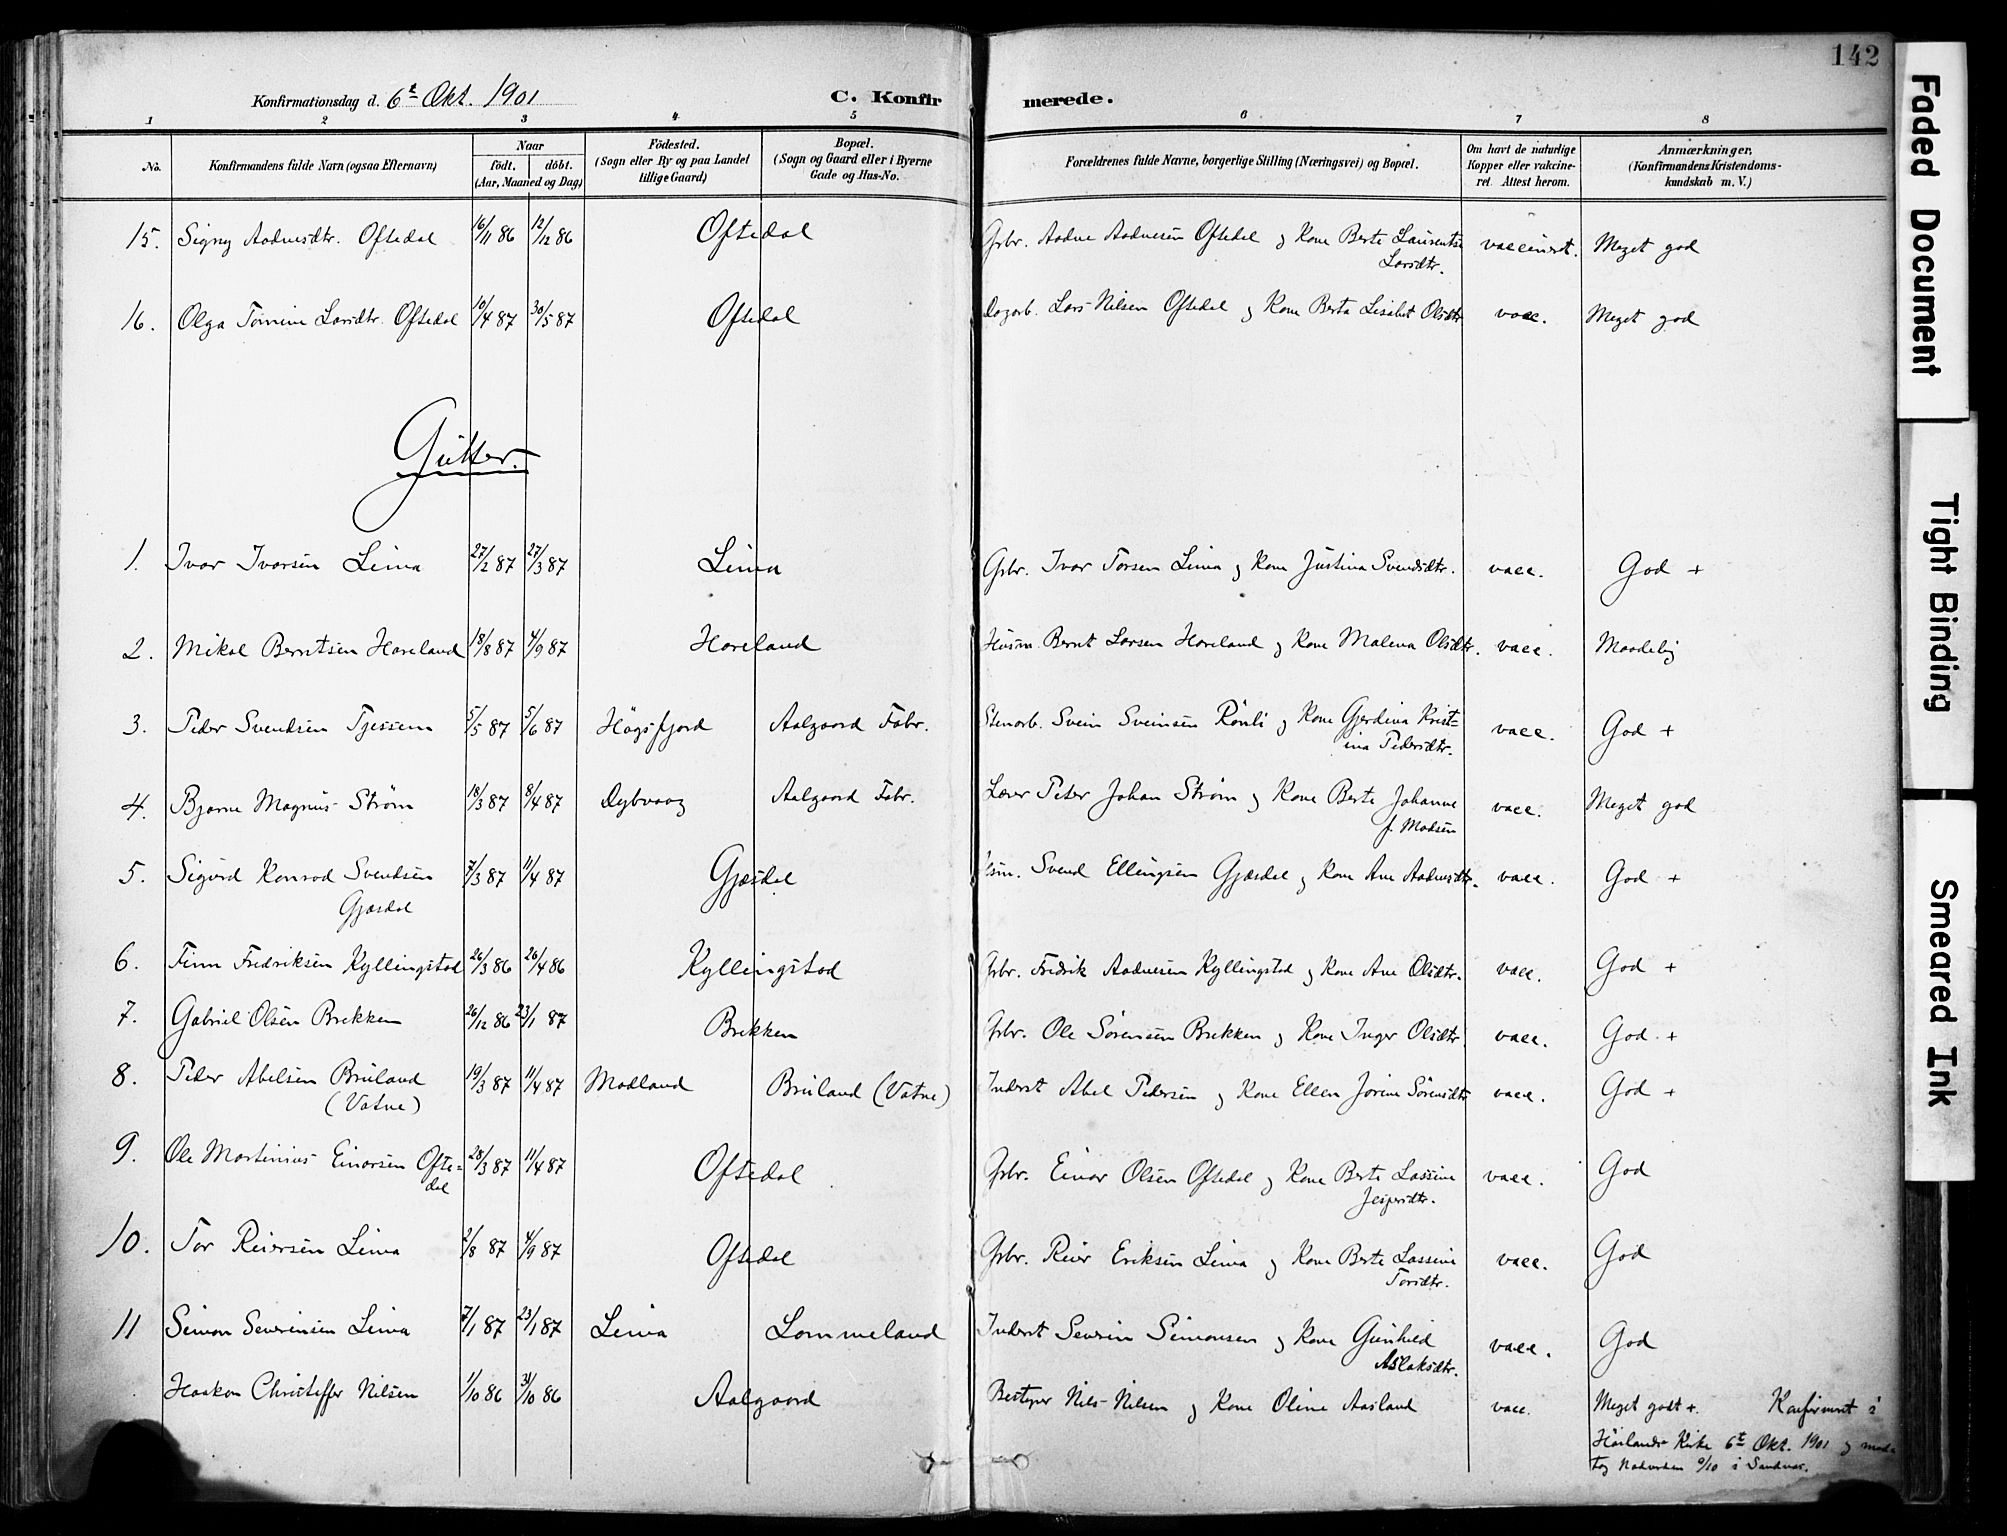 142
Konfirmationsdag d. 6te Okt. 1901
C. Konfirmerede.
1 2 3 4 5 6 7 8
No.
Konfirmandens fulde Navn (ogsaa Efternavn)
Naar
födt. döbt.
(Aar, Maaned og Dag)
Födested.
(Sogn eller By og paa Landet
tillige Gaard)
Bopæl.
(Sogn og Gaard eller i Byerne
Gade og Hus-No.
Forældrenes fulde Navne, borgerlige Stilling (Næringsvei) og Bopæl.
Om havt de naturlige
Kopper eller vakcine-
ret. Attest herom.
Anmærkninger,
(Konfirmandens Kristendoms-
kundskab m. V.)
15. Signy Aadnesdtr. Oftedal 16/11 86 12/12 86 Oftedal Grbr. Aadne Aadnesen Oftedal og Kone Berte Laurentse vaccineret. Meget god
Larsdtr.
16. Olga Tomine Larsdtr. Oftedal 10/4 87 30/5 87 Oftedal Dagarb. Lars Nilsen Oftedal og Kone Berta Lisabet Olsdtr vacc. Meget god
Gutter.
1. Ivar Ivarsen Lima 27/2 87 27/3 87 Lima Grbr. Ivar Torsen Lima og Kone Justina Svendsdtr. vacc. God +
2. Mikal Berntsen Haveland 18/8 87 4/9 87 Haveland Husm. Bernt Larsen Haveland og Kone Malena Olsdtr. vacc. Maadelig
3. Peder Svendsen Tjessem 5/5 87 5/6 87 Högsfjord Aalgaard Fabr. Stenarb. Svein Sveinsen Rönli og Kone Gjerdina Krist=
ina Pedersdtr. vacc. God +
4. Bjarne Magnus Ström 18/3 87 8/4 87 Dybvaag Aalgaard Fabr. Lærer Peter Johan Ström og Kone Berte Johanne
f. Madsen vacc. Meget god
5. Sigurd Konrad Svendsen 7/3 87 11/4 87 Gjæsdal Svend Ellingsen Gjæsdal og Kone Ane Aadnesdtr. vacc. God +
Gjæsdal
6. Finn Fredriksen Kyllingstad 26/3 86 26/4 86 Kyllingstad Grbr. Fredrik Aadnesen Kyllingstad og Kone Ane Olsdtr. vacc. God +
7. Gabriel Olsen Brekken 26/12 86 23/1 87 Brekken Grbr. Ole Sörensen Brekken og Kone Inger Olsdtr. vacc. God +
8. Peder Abelsen Bruland 19/3 87 11/4 87 Madland Bruland (Vatne) Inderst Abel Pedersen og Kone Ellen Jorine Sörensdtr vacc. God +
(Vatne)
9. Ole Martinius Einarsen Ofte= 28/3 87 11/4 87 Oftedal Grbr. Einar Olsen Oftedal og Kone Berte Lassine vacc. God
dal Jespersdtr.
10. Tor Reiersen Lima 2/8 87 4/9 87 Oftedal Grbr. Reier Eriksen Lima og Kone Berte Lassine vacc. God
Torsdtr.
11 Simon Severinsen Lima 7/1 87 23/1 87 Lima Lommeland Inderst Severin Simonsen og Kone Gunhild vacc. God
Aslaksdtr.
Haakon Christoffer Nilsen 1/10 86 31/10 86 Aalgaard Bestyrer Nils Nilsen og Kone Oline Aasland vacc. Meget godt +. Konfirmeret i
Höilands Kirke 6te Okt. 1901 og mod-
tog Nadverden 9/10 i Sandnæs.
Faded Document
Tight Binding
Smeared Ink